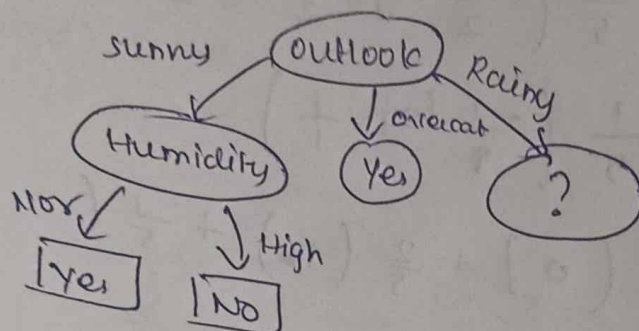 sunny
outlook
Rainy
overcat
Humidity
Yes
?
Nor
High
Yes
No